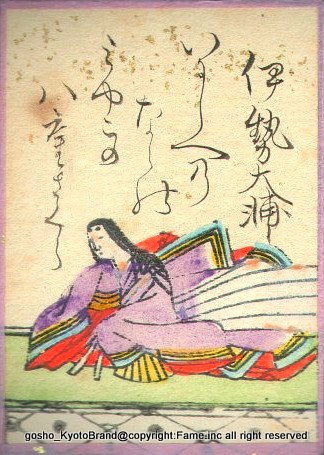 伊勢大輔
いにしへ乃
ならの
みやこの
八重さくら
gosho_KyotoBrand@copyright:Fame.inc all right reserved